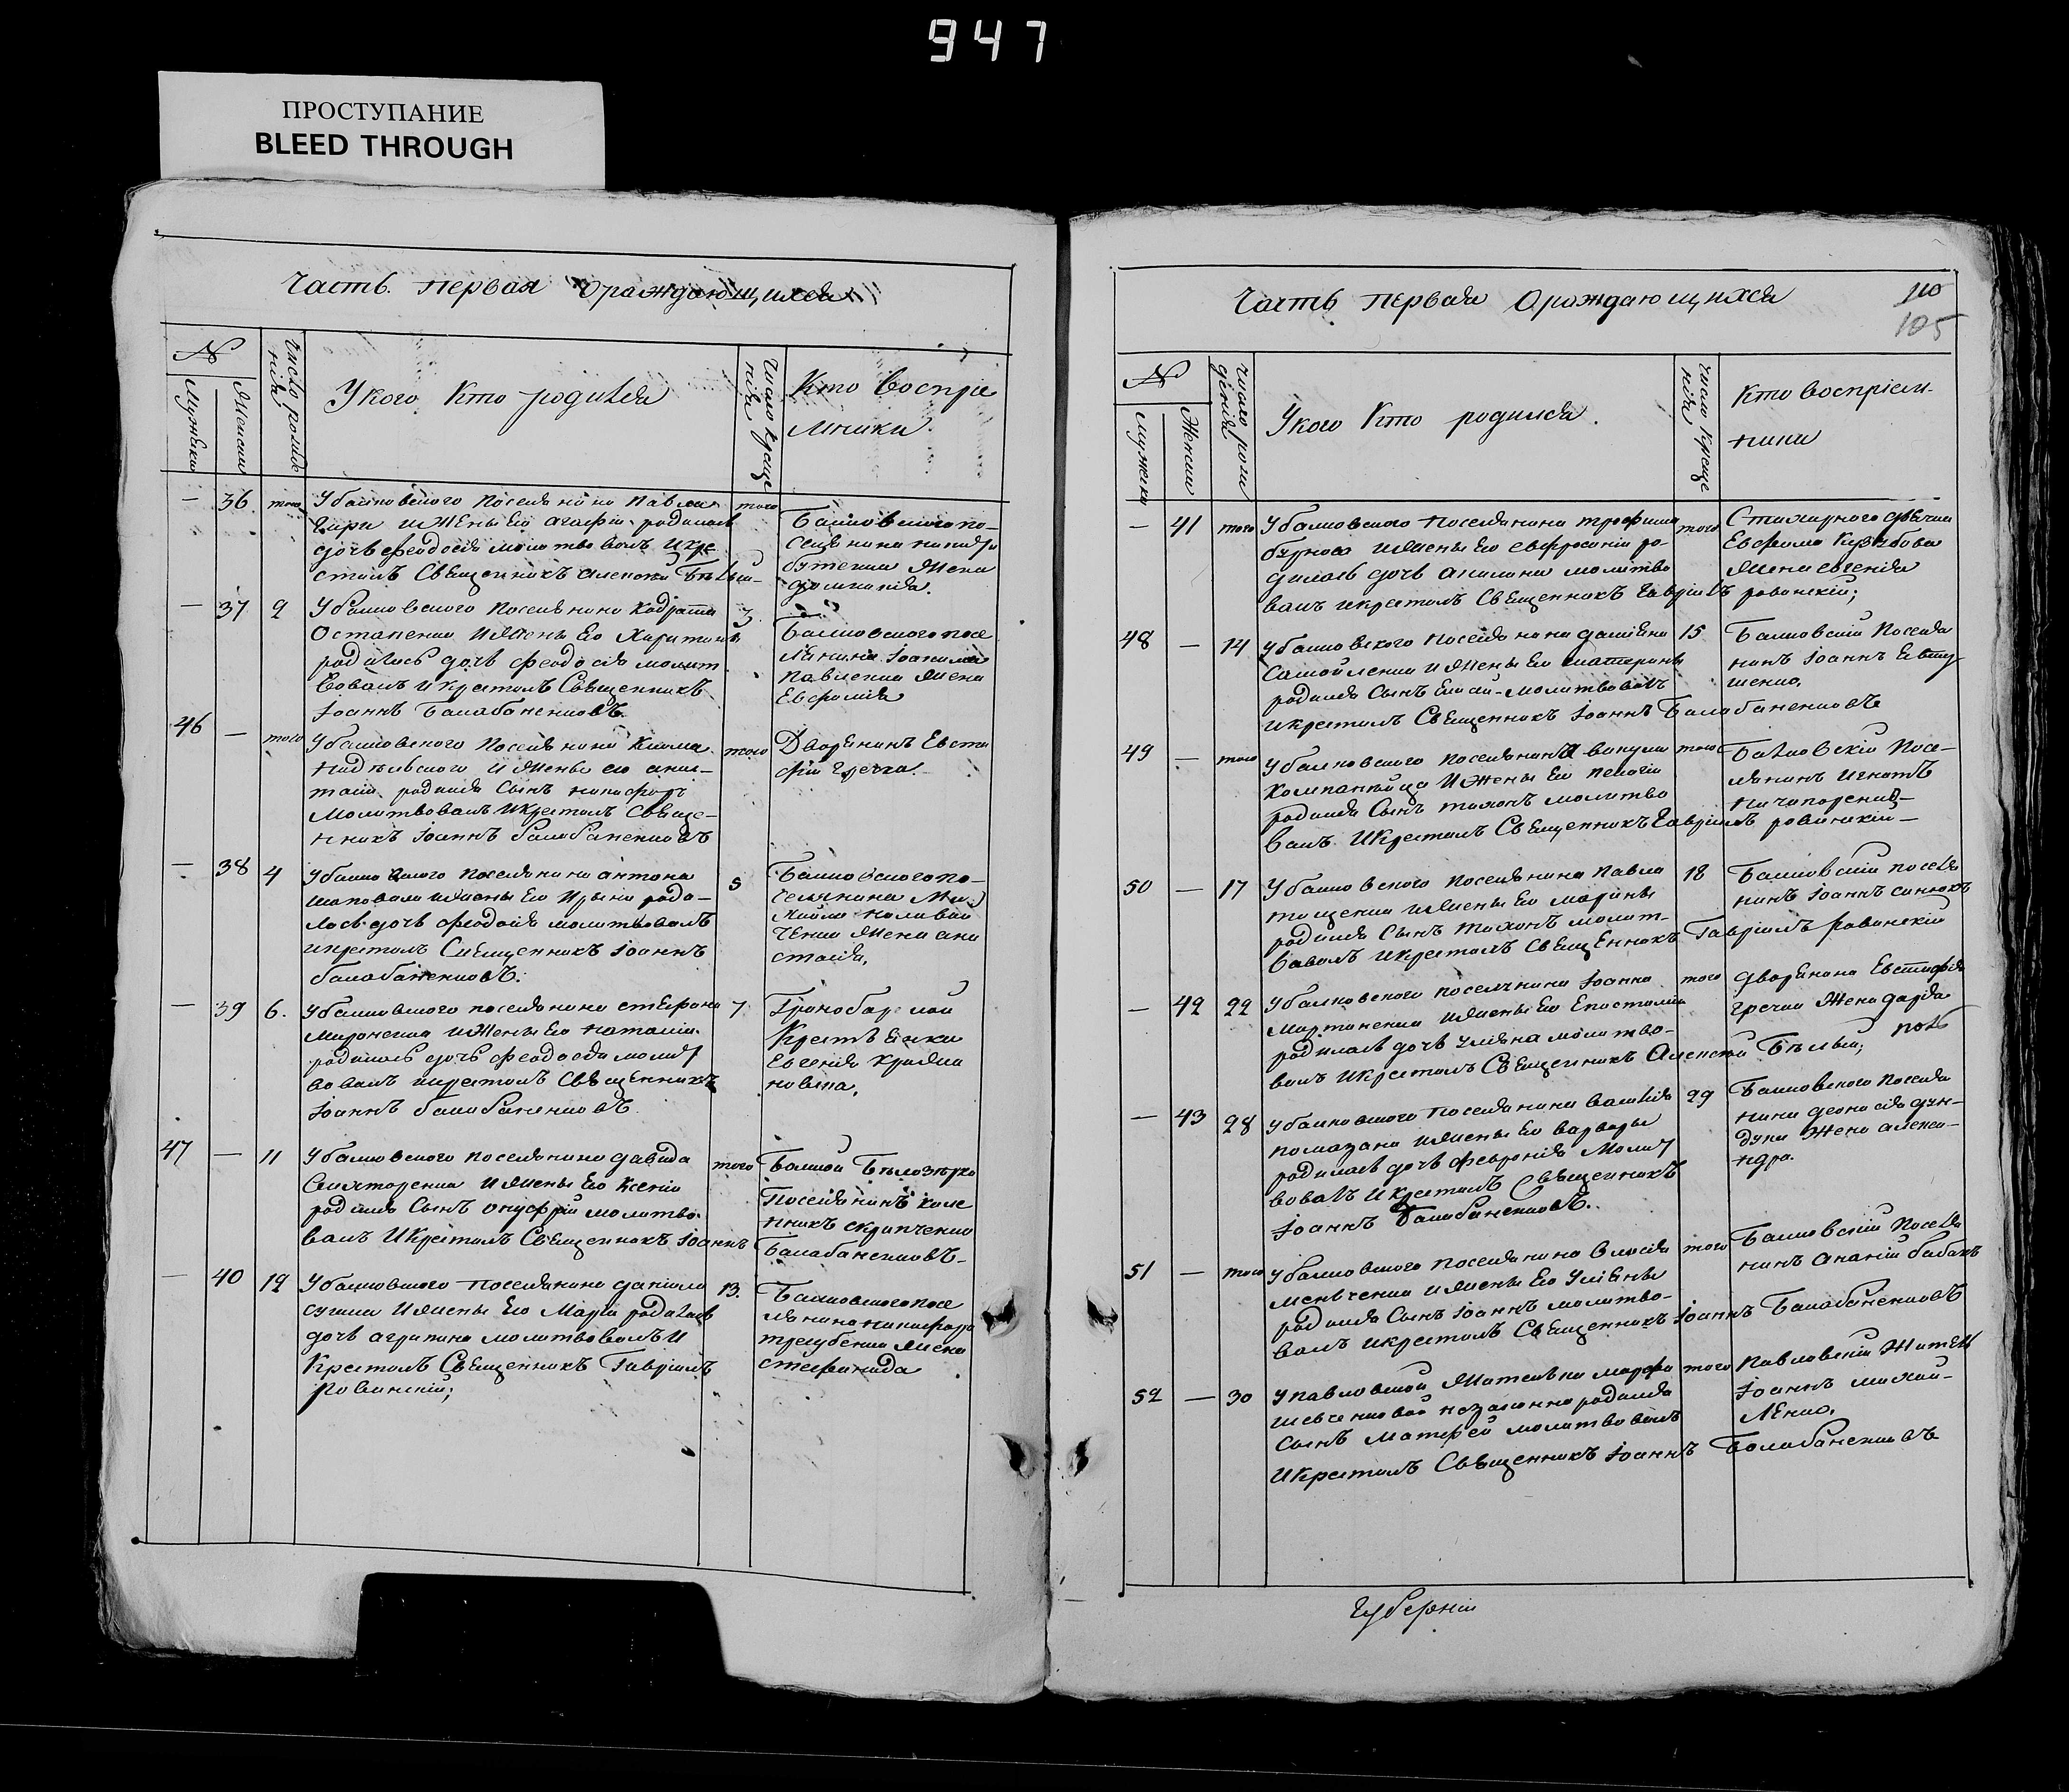 947
ПРОСТУПАНИЕ
BLEED THROUGH
Часть первая Ораждающихся
№
Мужеска
Женска
Число рожде
нія
Укого Кто родился
Число Креще
нія
Кто Воспріе
мники
— 36 того Убалковского Поселянина Павла того
Гири ижены Его агафіи родилась
дочь феодосія молитвовалъ икре
стилъ Священникъ алексей Белый
Балковского по-
Селянина
жена
домникія.
— 37 2 Убалковского Поселянина Кодрата 3
Остапенка ижены Его Харитины
родилась дочь феодосія молит
вовалъ икрестилъ Священникъ
Іоаннъ Балабаненковъ
Балковского посе
лянина Іоакима
Павленка жена
Евфимія
46 — того Убалковского Поселянина Козма того
ижены его анас-
тасіи родился Сынъ никифоръ
молитвовалъ икрестилъ Свяще-
нникъ Іоаннъ балабаненковъ
Дворянинъ Евста
фій Гречка
— 38 4 Убалковского поселянина антона 5
шаповала ижены Его Ирины роди-
лась дочь феодосія молитвовалъ
икрестилъ Священникъ Іоаннъ
балабаненковъ.
Балковского по-
селянина Ми-
хайла наливай
ченка жена ана
стасія.
— 39 6. Убалковского поселянина стефана 7
Мироненка ижены Его наталіи
родилась дочь феодосія молит
вовалъ икрестилъ Священникъ
Іоаннъ балабаненковъ
Крестьянки
Евгенія
47 — 11 Убалковского поселянина давида того
ижены Его Ксеніи
родился Сынъ онуфрій молитво-
валъ Икрестилъ Священникъ Іоаннъ
Балабаненковъ
Поселянинъ кале
никъ скрипченко
— 40 12 Убалковского поселянина даніила 13.
ижены Его Маріи родилась
дочь агрипина молитвовалъ И
Крестилъ Священникъ Гавріилъ
Ровинскій;
Балковского посе
лянина никифора
трегубенка жена
стефанида
Часть первая Ораждающихся
110
105
№
мужеска
Женска
Число рож
денія
Укого Кто родился.
Число Креще
нія
Кто Воспріем-
ники
— 41 того Убалковского поселянина трофима того
ижены Его евфросиніи ро-
дилась дочь акилина молитво
валъ икрестилъ Священникъ Гавріилъ ровинскій;
жена евгенія
48 — 14 Убалковского поселянина даміяна 15
Самойленка ижены Его катерины
родился Сынъ Елисей молитвовалъ
икрестилъ Священникъ Іоаннъ Балабаненковъ
Балковскій Поселя
нинъ Іоаннъ Евту
шенко.
49 — того Убалковского поселянина вакулы того
Компанѣйца Ижены Его пелагіи
родился Сынъ тихонъ молитво
валъ Икрестилъ Священникъ Гавріилъ ровинскій —
Балковскій Посе-
лянинъ Игнатъ
Ничипоренко
50 — 17 Убалковского поселянина павла 18
тищенка ижены Его марины
родился Сынъ тихонъ молит-
вовалъ икрестилъ Священникъ Гавріилъ ровинскій
Балковскій поселя
нинъ Іоаннъ синюкъ
— 42 22 Убалковского поселянина Іоанна того
мартиненка ижены Его Епистиміи
родилась дочь уліяна молитво-
валъ икрестилъ Священникъ Алексей Белый;
дворянина Евстафія
Гречки Жена дарія
— 43 28 Убалковского поселянина василія 29
помазана ижены Его варвары
родилась дочь февронія Молит
вовалъ икрестилъ Священникъ
Іоаннъ Балабаненковъ.
Балковского поселя
нина деонисія дун-
дуки Жена алекса-
ндра.
51 — того Убалковского поселянина власія того
ижены Его Уліяны
родился Сынъ Іоаннъ молитво-
валъ икрестилъ Священникъ Іоаннъ Балабаненковъ
Балковскій Поселя
нинъ ананій бабакъ
52 — 30 Упавловской Жительки марфы того
шевченковой незаконно родился
сынъ матфей молитвовалъ
икрестилъ Священникъ Іоаннъ Балабаненковъ
Павловскій Житель
Іоаннъ михай-
ленко.
Губерніи